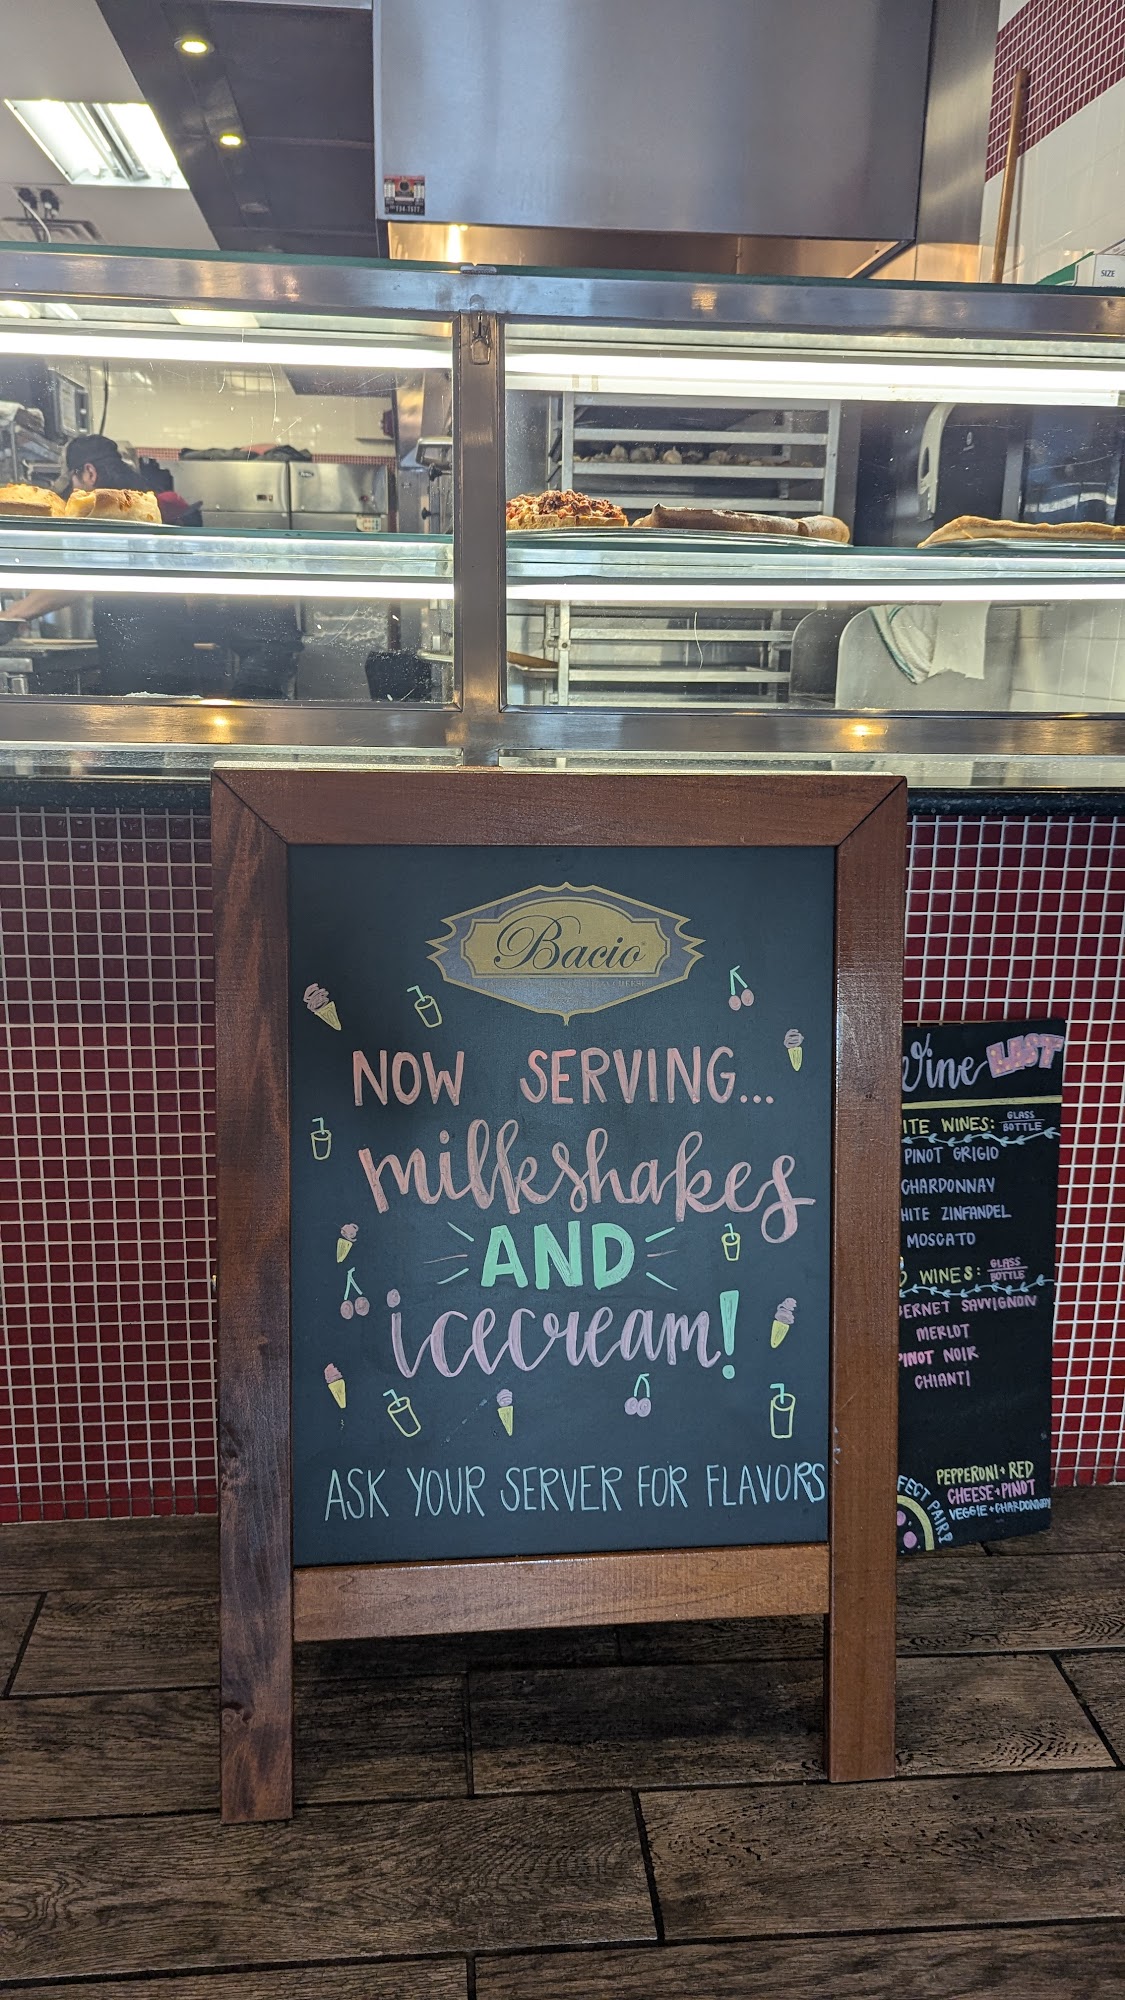 SIZE
Bacio
CHEESE
NOW SERVING...
milkshakes
AND
icecream!
ASK YOUR SERVER FOR FLAVORS
Wine LIST
ITE WINES: GLASS
BOTTLE
PINOT GRIGIO
CHARDONNAY
HITE ZINFANDEL
MOSCATO
WINES: GLASS
BOTTLE
ERNET SAVVIGNON
MERLOT
PINOT NOIR
CHIANTI
FECT PAIR
PEPPERONI + RED
CHEESE + PINOT
VEGGIE + CHARDONNAY